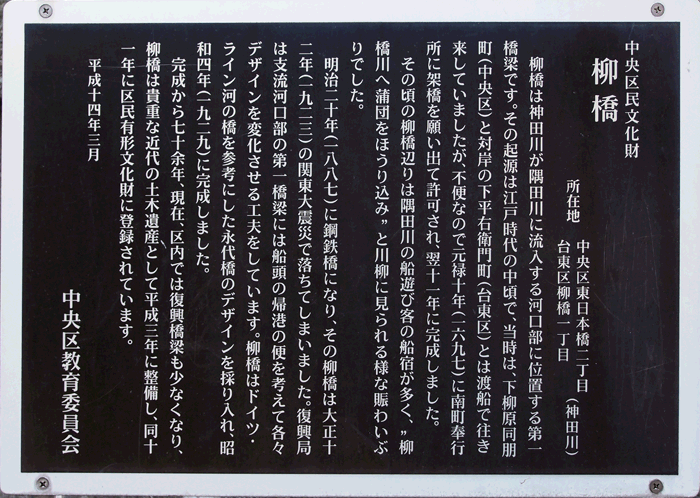 中央区民文化財
柳橋
所在地　中央区東日本橋二丁目
台東区柳橋一丁目（神田川）
柳橋は神田川が隅田川に流入する河口部に位置する第一
橋梁です。その起源は江戸時代の中頃で、当時は、下柳原同朋
町（中央区）と対岸の下平右衛門町（台東区）とは渡船で往き
来していましたが、不便なので元禄十年（一六九七）に南町奉行
所に架橋を願い出て許可され、翌十一年に完成しました。
その頃の柳橋辺りは隅田川の船遊び客の船宿が多く、”柳
橋川へ蒲団をほうり込み”と川柳に見られる様な賑わいぶ
りでした。
明治二十年（一八八七）に鋼鉄橋になり、その柳橋は大正十
二年（一九二三）の関東大震災で落ちてしまいました。復興局
は支流河口部の第一橋梁には船頭の帰港の便を考えて各々
デザインを変化させる工夫をしています。柳橋はドイツ・
ライン河の橋を参考にした永代橋のデザインを採り入れ、昭
和四年（一九二九）に完成しました。
完成から七十余年、現在、区内では復興橋梁も少なくなり、
柳橋は貴重な近代の土木遺産として平成三年に整備し、同十
一年に区民有形文化財に登録されています。
平成十四年三月
中央区教育委員会